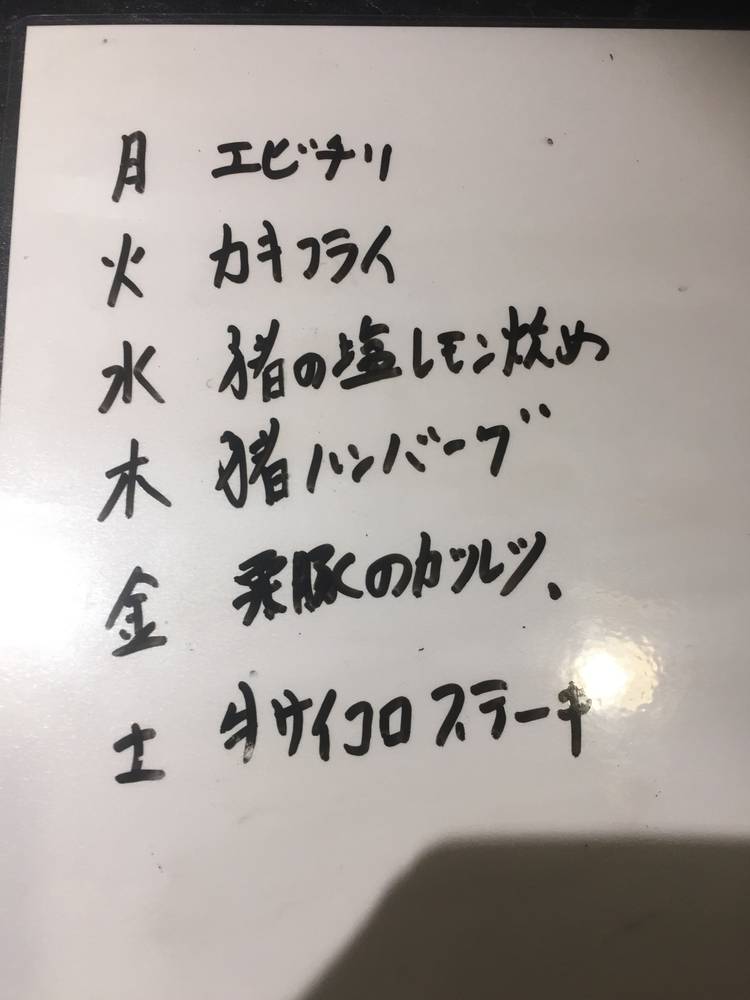 月 エビチリ
火 カキフライ
水 猪の塩レモン炒め
木 猪ハンバーグ
金 栗豚のカツレツ、
土 牛サイコロステーキ